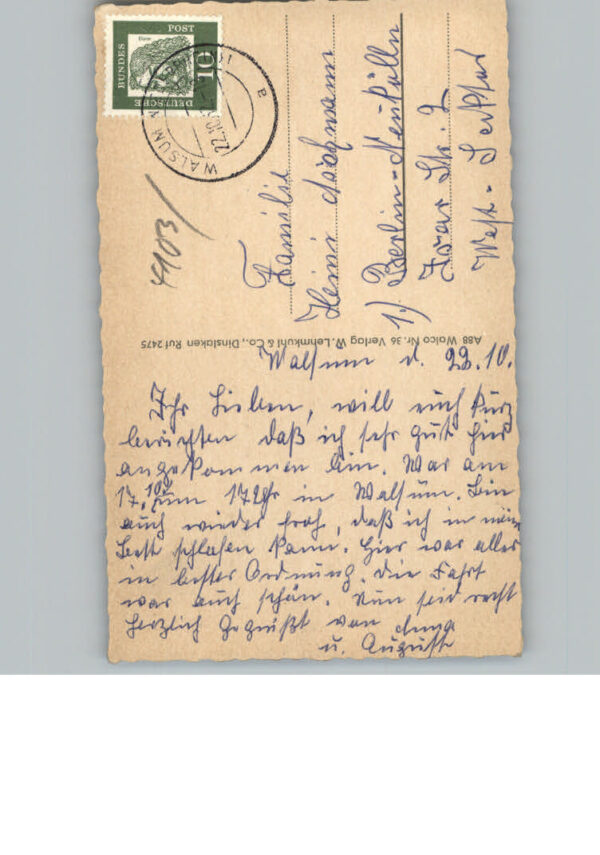 DEUTSCHE
BUNDES
POST
10
WALSUM
22.10.
a
4103/
Familie
Heini
1) Berlin-Neukölln
Isar Str. 2
West-Sektor
A88 Walco Nr. 36 Verlag W. Lehmkuhl & Co., Dinslaken Ruf 2475
Walsum d. 22.10.
Ihr Lieben, will euch kurz
berichten daß ich sehr gut hier
angekommen bin. War am
17.10. zum 17 Uhr in Walsum. Bin
auch wieder froh, daß ich in mein
Bett schlafen kann. Hier war alles
in bester Ordnung. Die Fahrt
war auch schön. Nun seid recht
herzlich Gegrüßt von
u. August